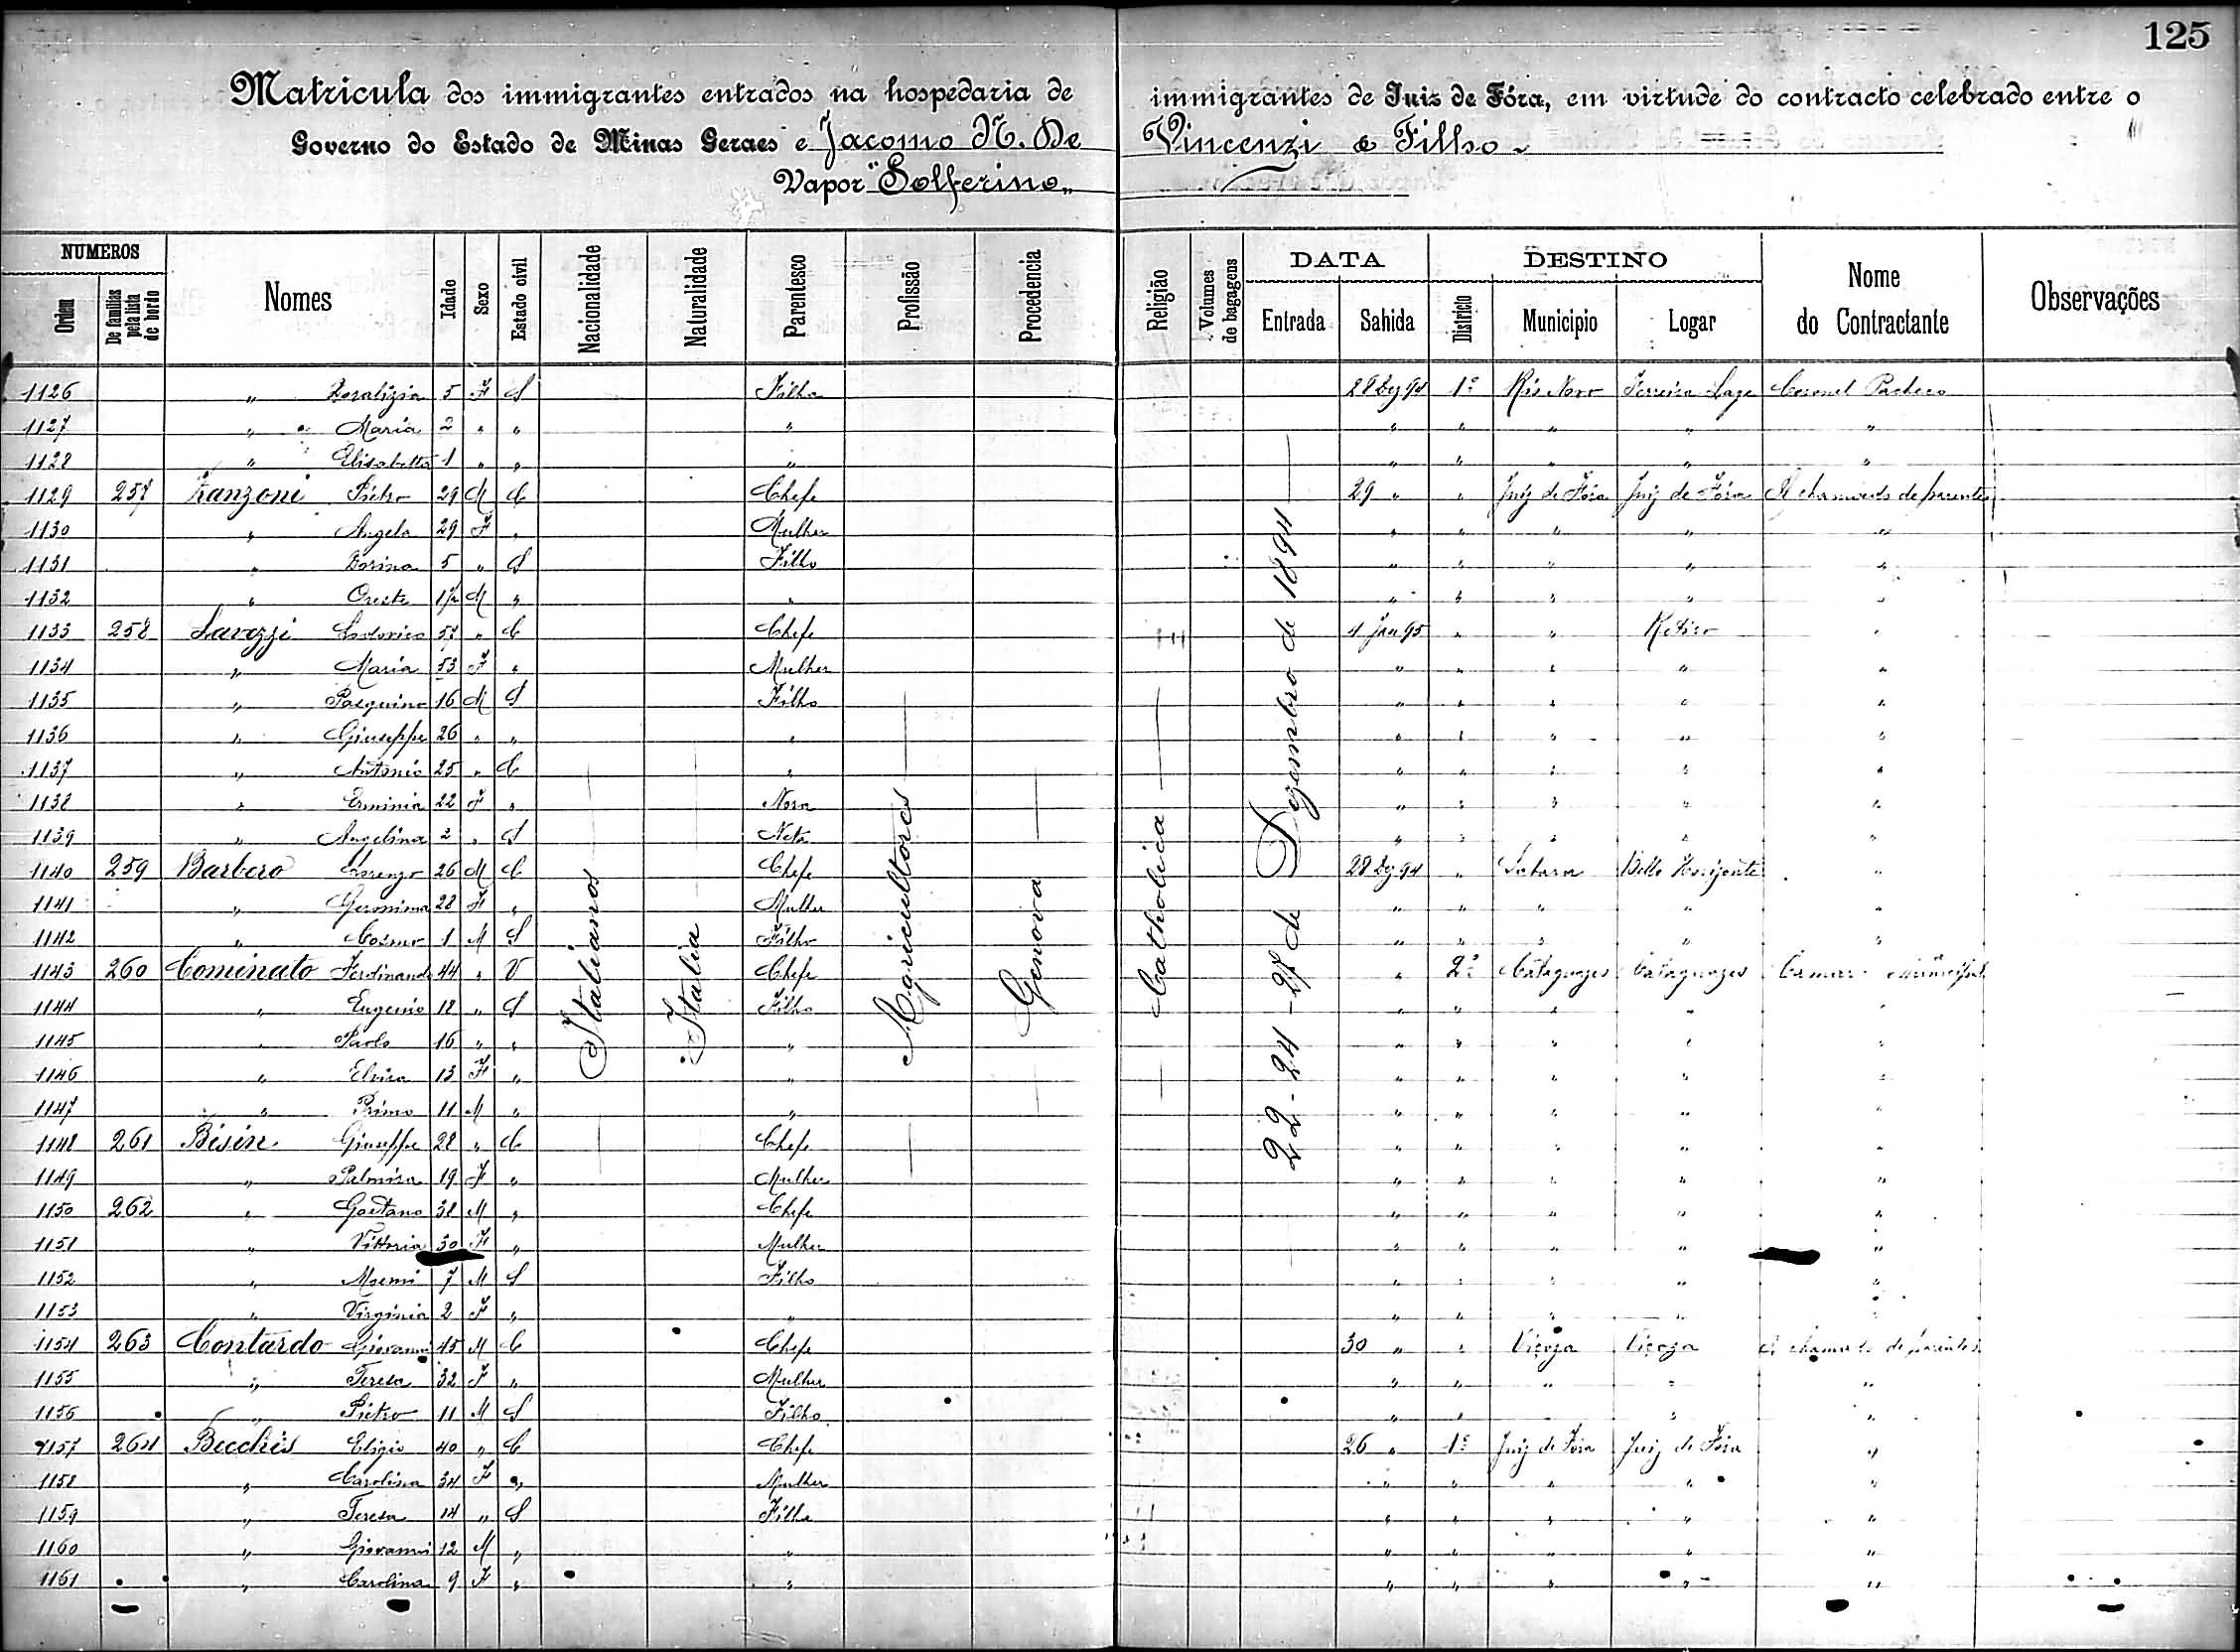 125
Matricula dos immigrantes entrados na hospedaria de immigrantes de Juiz de Fóra, em virtude do contracto celebrado entre o
Governo do Estado de Minas Geraes e Jacomo N. De Vincenzi & Filho
Vapor "Solferino"
NUMEROS DATA DESTINO
Ordem De familias pela lista de bordo Nomes Idade Sexo Estado civil Nacionalidade Naturalidade Parentesco Profissão Procedencia Religião Volumes de bagagens Entrada Sahida Districto Municipio Logar Nome do Contractante Observações
Italianos
Italia
Agricultores
Genova
Catholica
22 - 24 - 27 de Dezembro de 1894
1126 " 5 F S Filha 28 Dez 94 1º Rio Novo Ferreira Lage Coronel Pacheco
1127 " Maria 2 " " " " " " " "
1128 " Elisabetta 1 " " " " " " " "
1129 257 Zanzoni Pietro 29 M C Chefe 29 " " Juiz de Fóra Juiz de Fóra A chamado de parentes
1130 " Angela 29 F " Mulher " " " " "
1131 " Dorina 5 " S Filho " " " " "
1132 " Oreste 1/2 M " " " " " " "
1133 258 Lavezzi Lodovico 57 " C Chefe 4 Jan 95 " " Retiro "
1134 " Maria 53 F " Mulher " " " " "
1135 " Pasquino 16 M S Filho " " " " "
1136 " Giuseppe 26 " " " " " " " "
1137 " Antonio 25 " C " " " " " "
1138 " Erminia 22 F " Nora " " " " "
1139 " Angelina 2 " S Neta " " " " "
1140 259 Barbero Lorenzo 26 M C Chefe 28 Dez 94 " Sabara Bello Horizonte "
1141 " Geronima 28 F " Mulher " " " " "
1142 " Cosmo 1 M S Filho " " " " "
1143 260 Cominato Ferdinando 44 " V Chefe " 2º Cataguazes Cataguazes Camara municipal
1144 " Eugenio 18 " S Filho " " " " "
1145 " Paolo 16 " " " " " " " "
1146 " Elvira 13 F " " " " " " "
1147 " Primo 11 M " " " " " " "
1148 261 Bisin Giuseppe 28 " C Chefe " " " " "
1149 " Palmira 19 F " Mulher " " " " "
1150 262 " Gaetano 38 M " Chefe " " " " "
1151 " Vittoria 30 F " Mulher " " " " "
1152 " Moemi 7 M S Filho " " " " "
1153 " Virginia 2 F " " " " " " "
1154 263 Contardo Giovanni 45 M C Chefe 30 " " Viçoza Viçoza A chamado de parentes
1155 " Teresa 32 F " Mulher " " " " "
1156 " Pietro 11 M S Filho " " " " "
1157 264 Becchis Eligio 40 " C Chefe 26 " 1º Juiz de Fóra Juiz de Fóra "
1158 " Carolina 34 F " Mulher " " " " "
1159 " Teresa 14 " S Filha " " " " "
1160 " Giovanni 12 M " " " " " " "
1161 " Carolina 9 F " " " " " " "